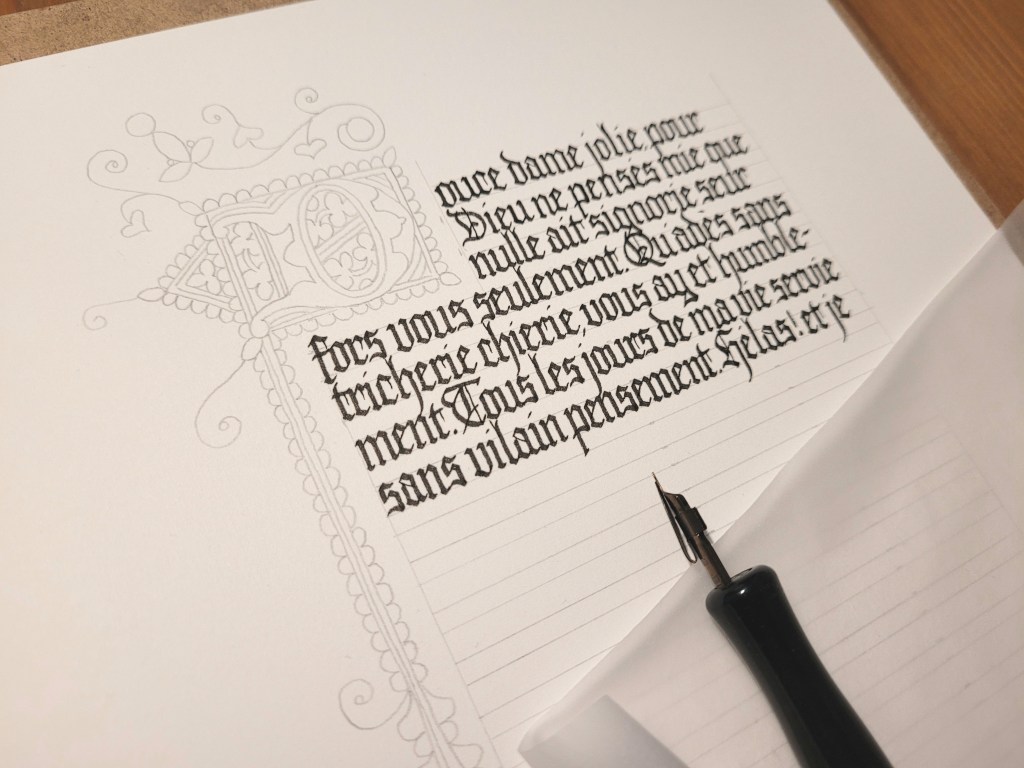 Douce dame jolie, pour
Dieu ne penses mie que
nulle ait signorie seur
fors vous seulement. Qu'adès sans
tricherie chierie, vous ay et humble-
ment. Tous les jours de ma vie servie
sans vilain pensement. Helas! et je